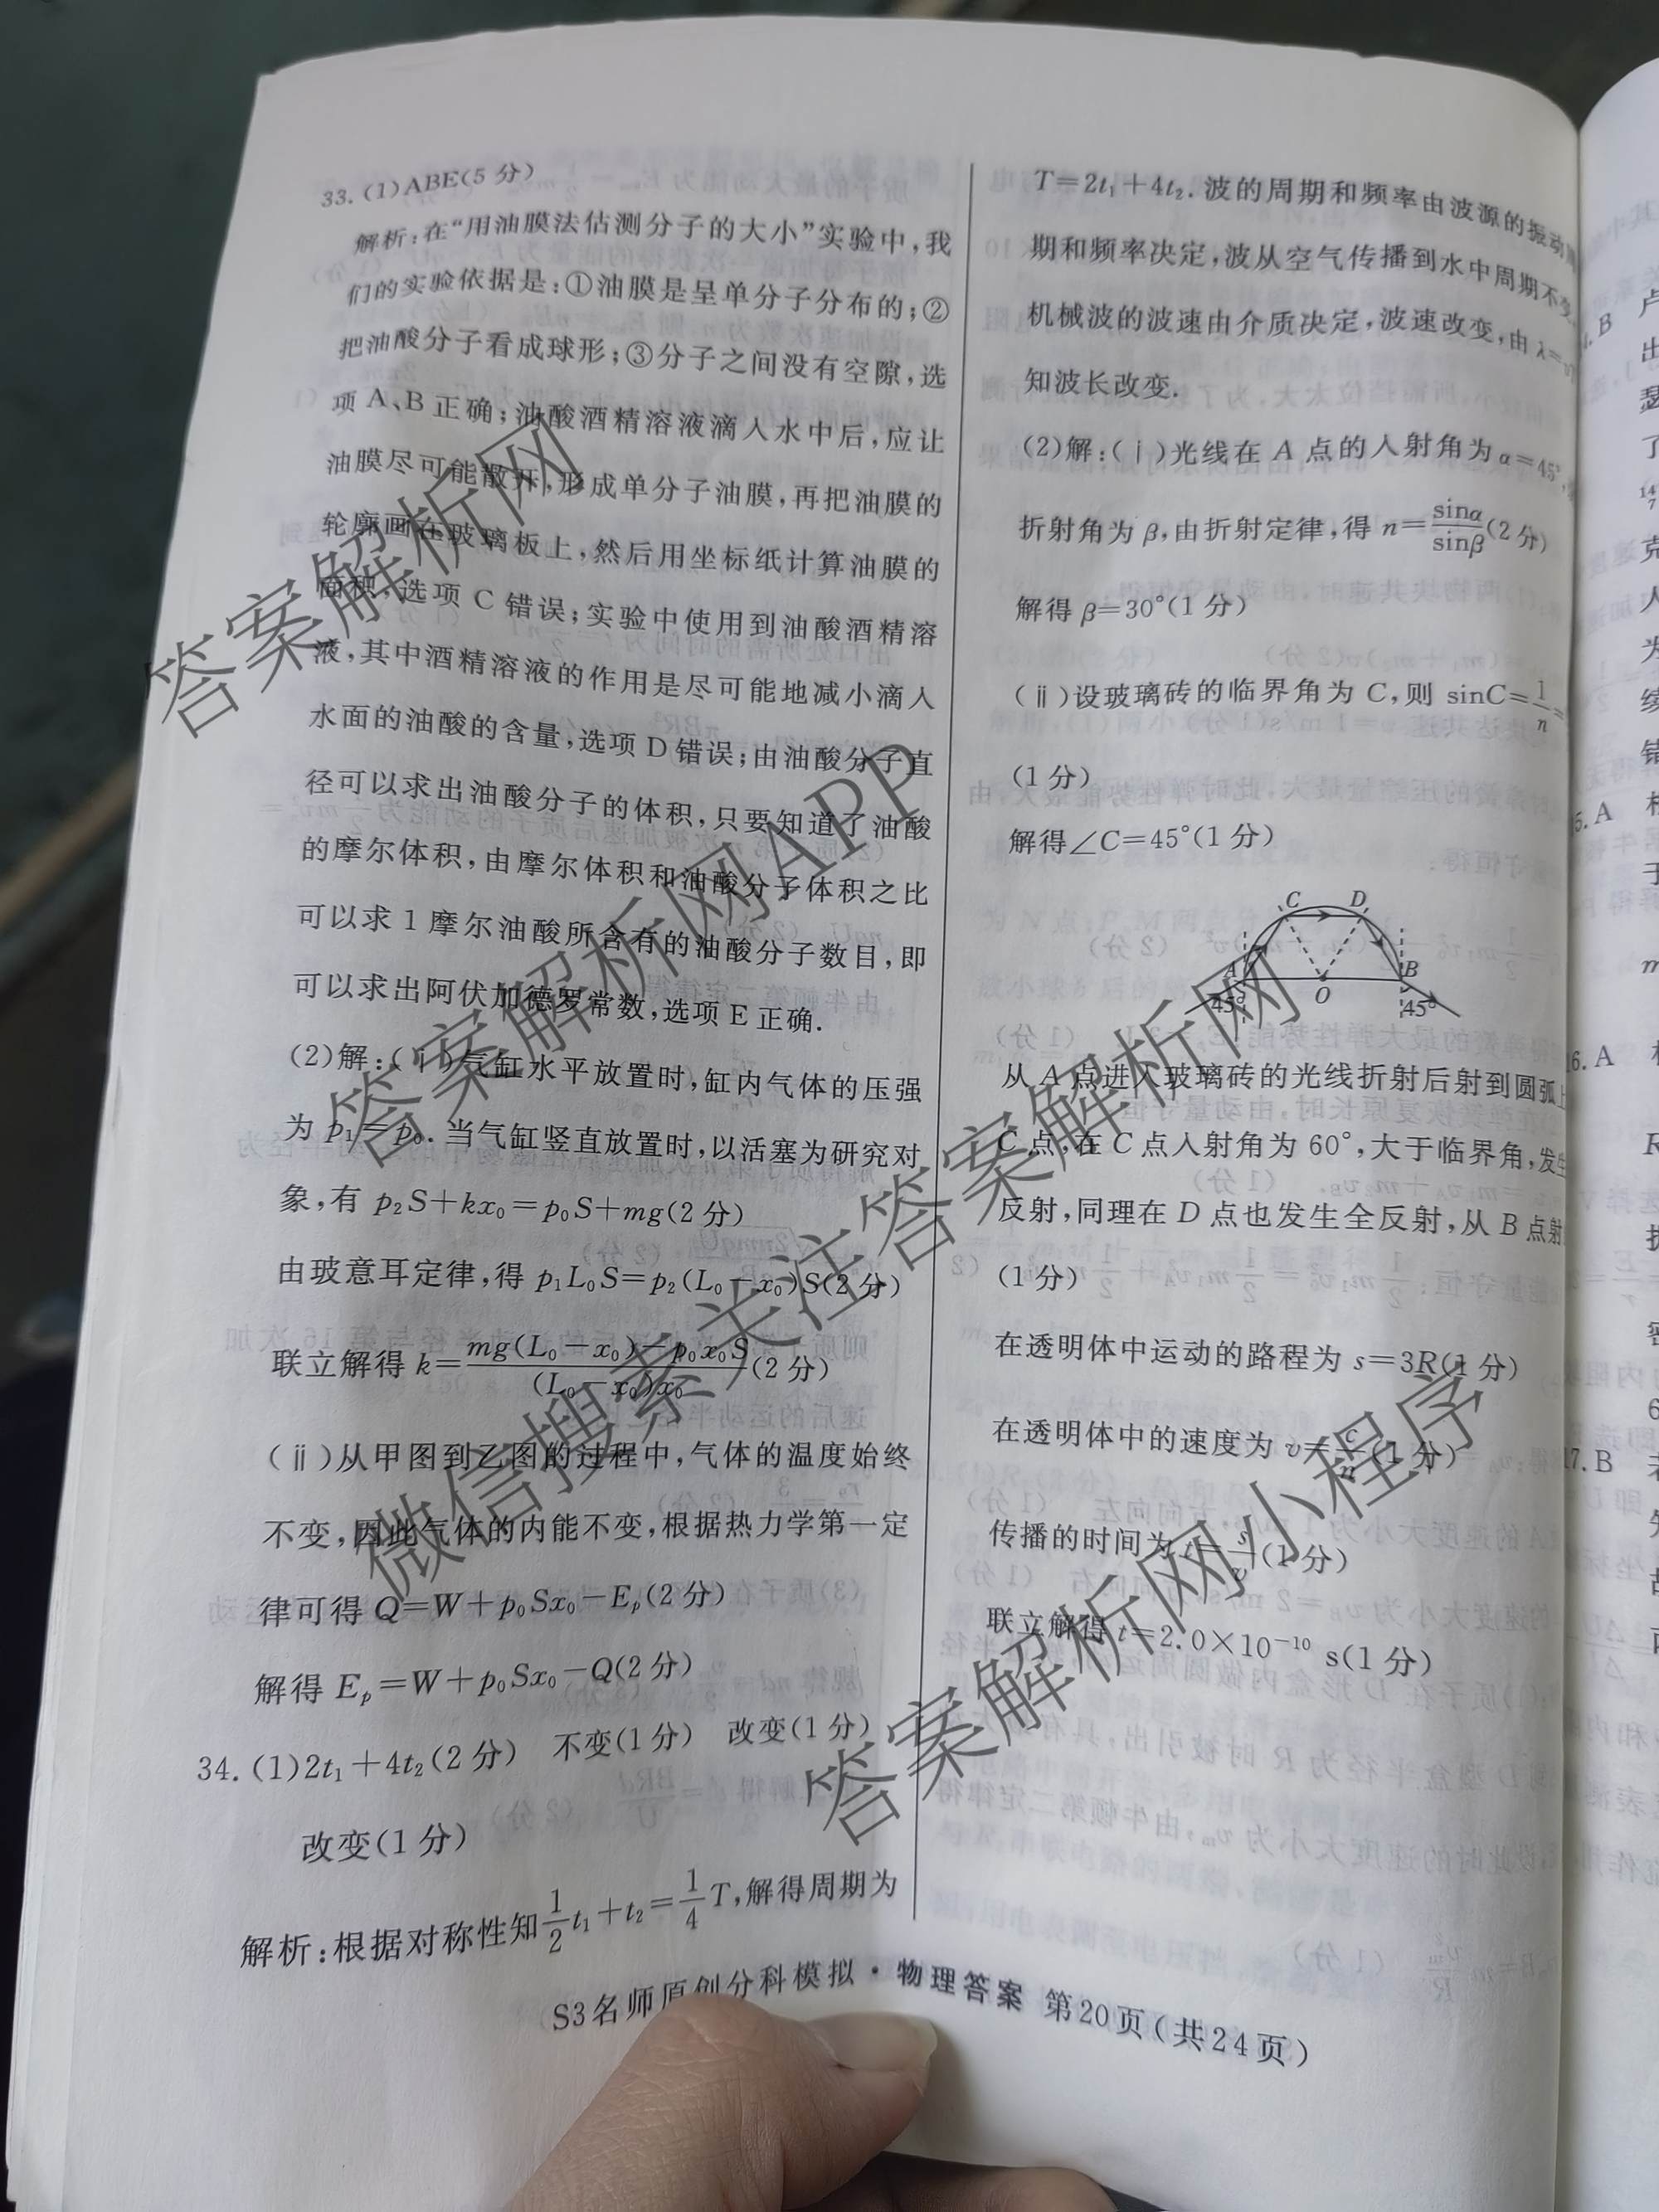 33. (1)ABE(5 分)
解析:在“用油膜法估测分子的大小”实验中,我
们的实验依据是:①油膜是呈单分子分布的;②
把油酸分子看成球形;③分子之间没有空隙,选
项 A、B 正确;油酸酒精溶液滴入水中后,应让
油膜尽可能散开,形成单分子油膜,再把油膜的
轮廓画在玻璃板上,然后用坐标纸计算油膜的
面积,选项 C 错误;实验中使用到油酸酒精溶
液,其中酒精溶液的作用是尽可能地减小滴入
水面的油酸的含量,选项 D 错误;由油酸分子直
径可以求出油酸分子的体积,只要知道了油酸
的摩尔体积,由摩尔体积和油酸分子体积之比
可以求 1 摩尔油酸所含有的油酸分子数目,即
可以求出阿伏加德罗常数,选项 E 正确.
(2)解:(ⅰ)气缸水平放置时,缸内气体的压强
为 p₁=p₀. 当气缸竖直放置时,以活塞为研究对
象,有 p₂S+kx₀=p₀S+mg(2 分)
由玻意耳定律,得 p₁L₀S=p₂(L₀-x₀)S(2 分)
联立解得 k=\frac{mg(L₀-x₀)-p₀x₀S}{(L₀-x₀)x₀}(2 分)
(ⅱ)从甲图到乙图的过程中,气体的温度始终
不变,因此气体的内能不变,根据热力学第一定
律可得 Q=W+p₀Sx₀-Eₚ(2 分)
解得 Eₚ=W+p₀Sx₀-Q(2 分)
34. (1)2t₁+4t₂(2 分) 不变(1 分) 改变(1 分)
改变(1 分)
解析:根据对称性知\frac{1}{2}t₁+t₂=\frac{1}{4}T,解得周期为
T=2t₁+4t₂. 波的周期和频率由波源的振动
期和频率决定,波从空气传播到水中周期不变
机械波的波速由介质决定,波速改变,由 λ=
知波长改变.
(2)解:(ⅰ)光线在 A 点的入射角为 α=45°,
折射角为 β,由折射定律,得 n=\frac{sinα}{sinβ}(2 分)
解得 β=30°(1 分)
(ⅱ)设玻璃砖的临界角为 C,则 sinC=\frac{1}{n}=
(1 分)
解得∠C=45°(1 分)
C D
A O B
45° 45°
从 A 点进入玻璃砖的光线折射后射到圆弧上
C 点,在 C 点入射角为 60°,大于临界角,发生
反射,同理在 D 点也发生全反射,从 B 点射
(1 分)
在透明体中运动的路程为 s=3R(1 分)
在透明体中的速度为 v=\frac{c}{n}(1 分)
传播的时间为 t=\frac{s}{v}(1 分)
联立解得 t=2.0×10⁻¹⁰ s(1 分)
S3名师原创分科模拟·物理答案 第20页(共24页)
B
15. A
16. A
17. B
答案解析网
答案解析网APP
微信搜索关注答案解析网
答案解析网小程序